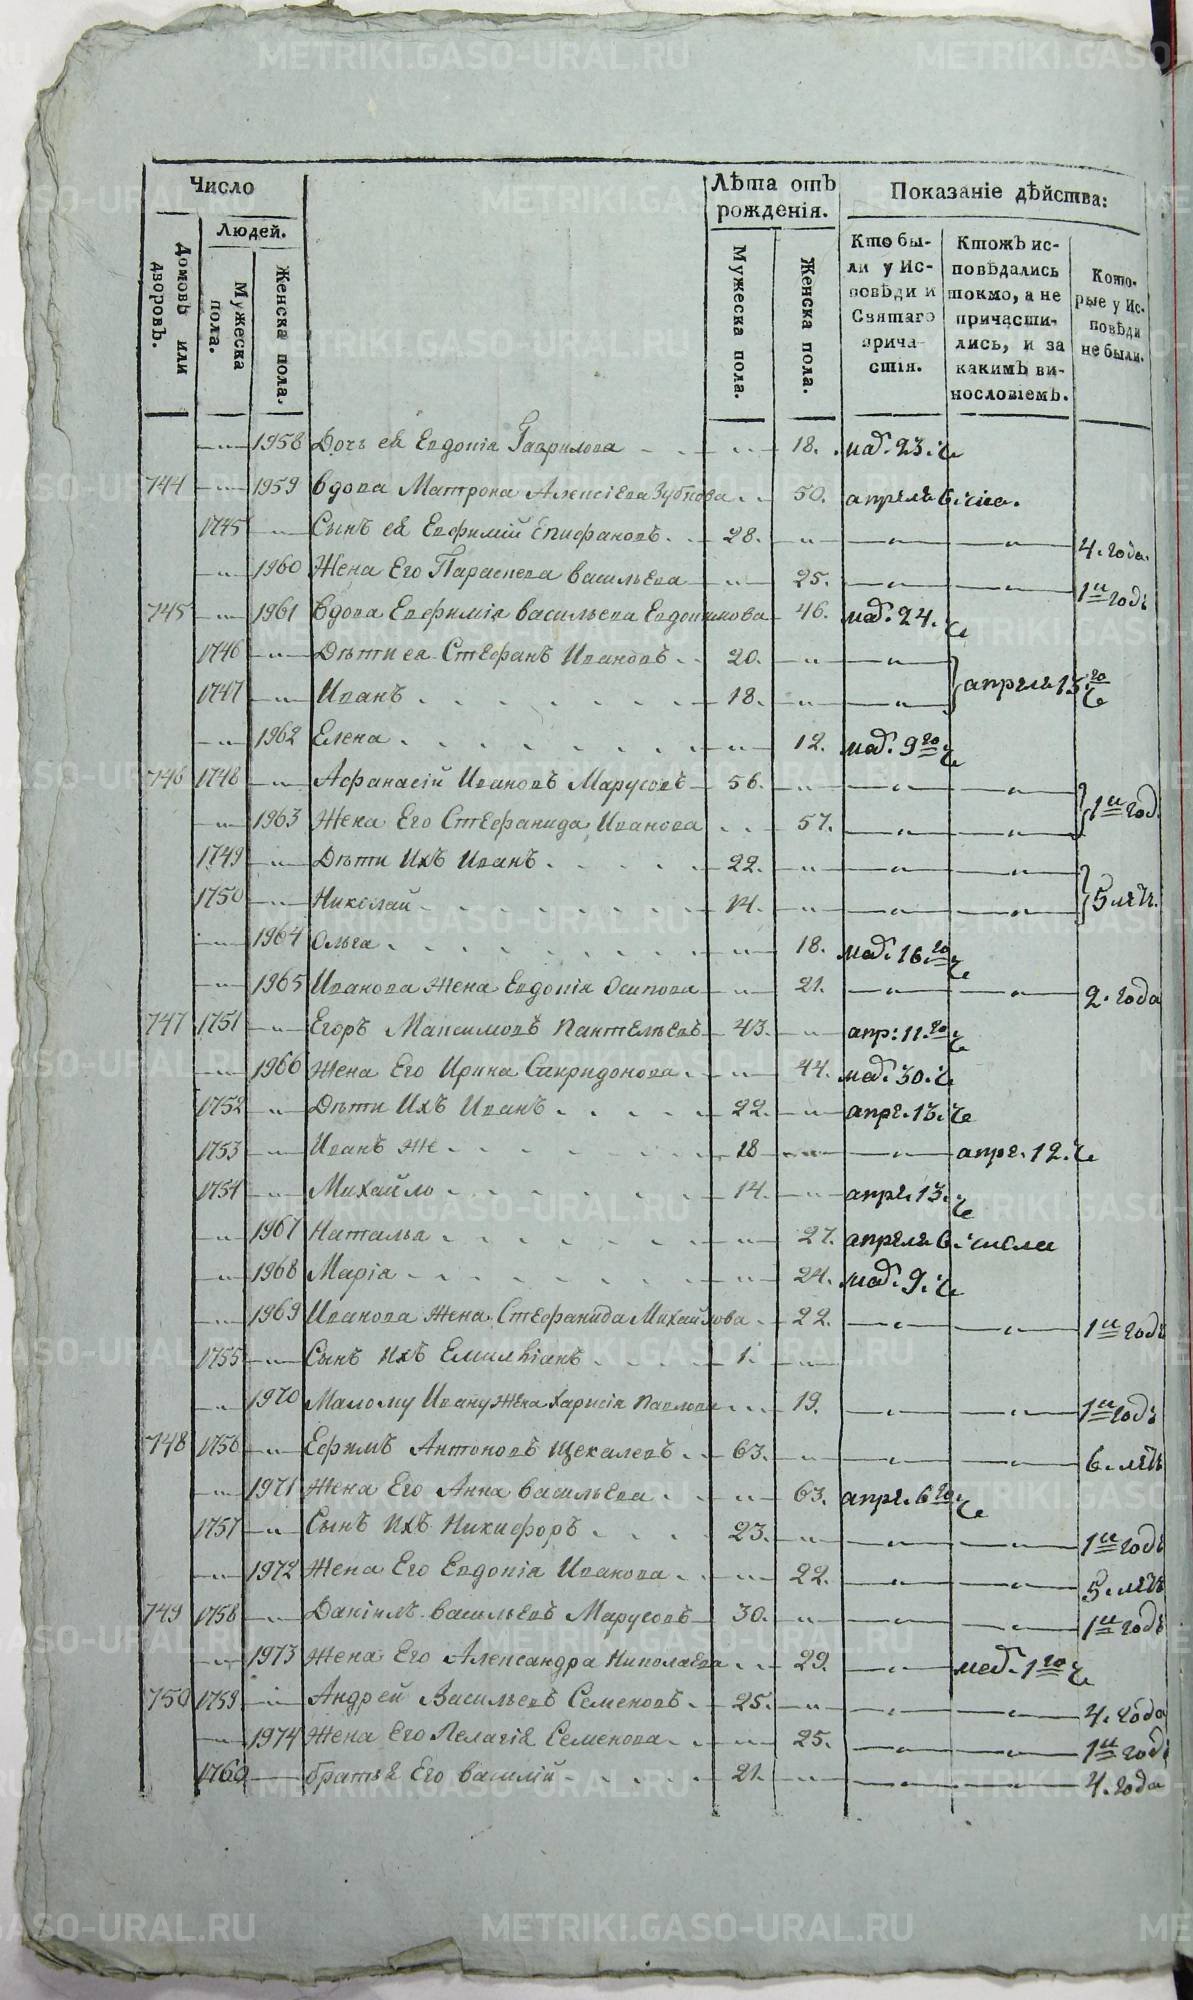 Число
Людей.
Домовъ или дворовъ.
Мужеска пола.
Женска пола.
Лѣта отъ рожденія.
Мужеска пола.
Женска пола.
Показаніе дѣйства:
Кто бы-
ли у Ис-
повѣди и
Святаго
прича-
стія.
Ктожъ ис-
повѣдались
токмо, а не
причасти-
лись, и за
какимъ ви-
нословіемъ.
Кото-
рые у Ис-
повѣди
не были.
—"— 1958 Дочь ея Евдокія Гаврилова 18. маѣ. 23. ч
744 —"— 1959 Вдова Матрона Алексіева Зубкова 50. апреля 6. чис.
1745 —"— Сынъ ея Евфимій Епифановъ 28. —"— —"— —"— 4. года.
—"— 1960 Жена Его Параскева Васильева —"— 25. —"— —"— 1й годъ
745 —"— 1961 Вдова Евфимія Васильева Евдокимова 46. 24. ч
1746 —"— Дѣти ея Стефанъ Ивановъ 20. —"— —"— апреля 13го ч
1747 —"— Иванъ 18. —"— —"—
—"— 1962 Елена —"— 12. 9го ч
746 1748 —"— Афанасій Ивановъ Марусовъ 56. —"— —"— —"— 1й год
—"— 1963 Жена Его Стефанида Иванова 57. —"— —"—
1749 —"— Дѣти Ихъ Иванъ 22. —"— —"— —"— 5 лѣтъ.
1750 —"— Николай 14. —"— —"— —"—
—"— 1964 Ольга —"— 18. 16.го ч
—"— 1965 Иванова Жена Евдокія Осипова —"— 21. —"— —"— 2. года
747 1751 —"— Егоръ Максимовъ Пантелѣевъ 43. —"— апр: 11.го ч
—"— 1966 Жена Его Ирина Спиридонова —"— 44. 30. ч
1752 —"— Дѣти Ихъ Иванъ 22. —"— апре. 13. ч
1753 —"— Иванъ же 18 —"— —"— апре. 12. ч
1754 —"— Михайло 14. —"— апре. 13. ч
—"— 1967 Наталья —"— 27. апреля 6. числа
—"— 1968 Марія —"— 24. 9. ч
—"— 1969 Иванова Жена Стефанида Михайлова 22. —"— —"— 1й годъ
1755 —"— Сынъ Ихъ Емиліанъ 1. —"—
—"— 1970 Малому Ивану Жена Павлова 19. —"— —"— 1й годъ
748 1756 —"— Ефимъ Антоновъ Щекалевъ 63. —"— —"— —"— 6. лѣтъ
—"— 1971 Жена Его Анна Васильева —"— 63. апре. 6го ч
1757 —"— Сынъ Ихъ Никифоръ 23. —"— —"— —"— 1й годъ
—"— 1972 Жена Его Евдокія Иванова —"— 22. —"— —"— 5. лѣтъ
749 1758 —"— Даніилъ Васильевъ Марусовъ 30. —"— —"— —"— 1й годъ
—"— 1973 Жена Его Александра Николаева 29. —"— 1го ч
750 1759 —"— Андрей Васильевъ Семеновъ 25. —"— —"— —"— 4. года
—"— 1974 Жена Его Пелагія Семенова 25. —"— —"— 1й годъ
1760 —"— братья Его Василій 21. —"— —"— —"— 4. года
METRIKI.GASO-URAL.RU